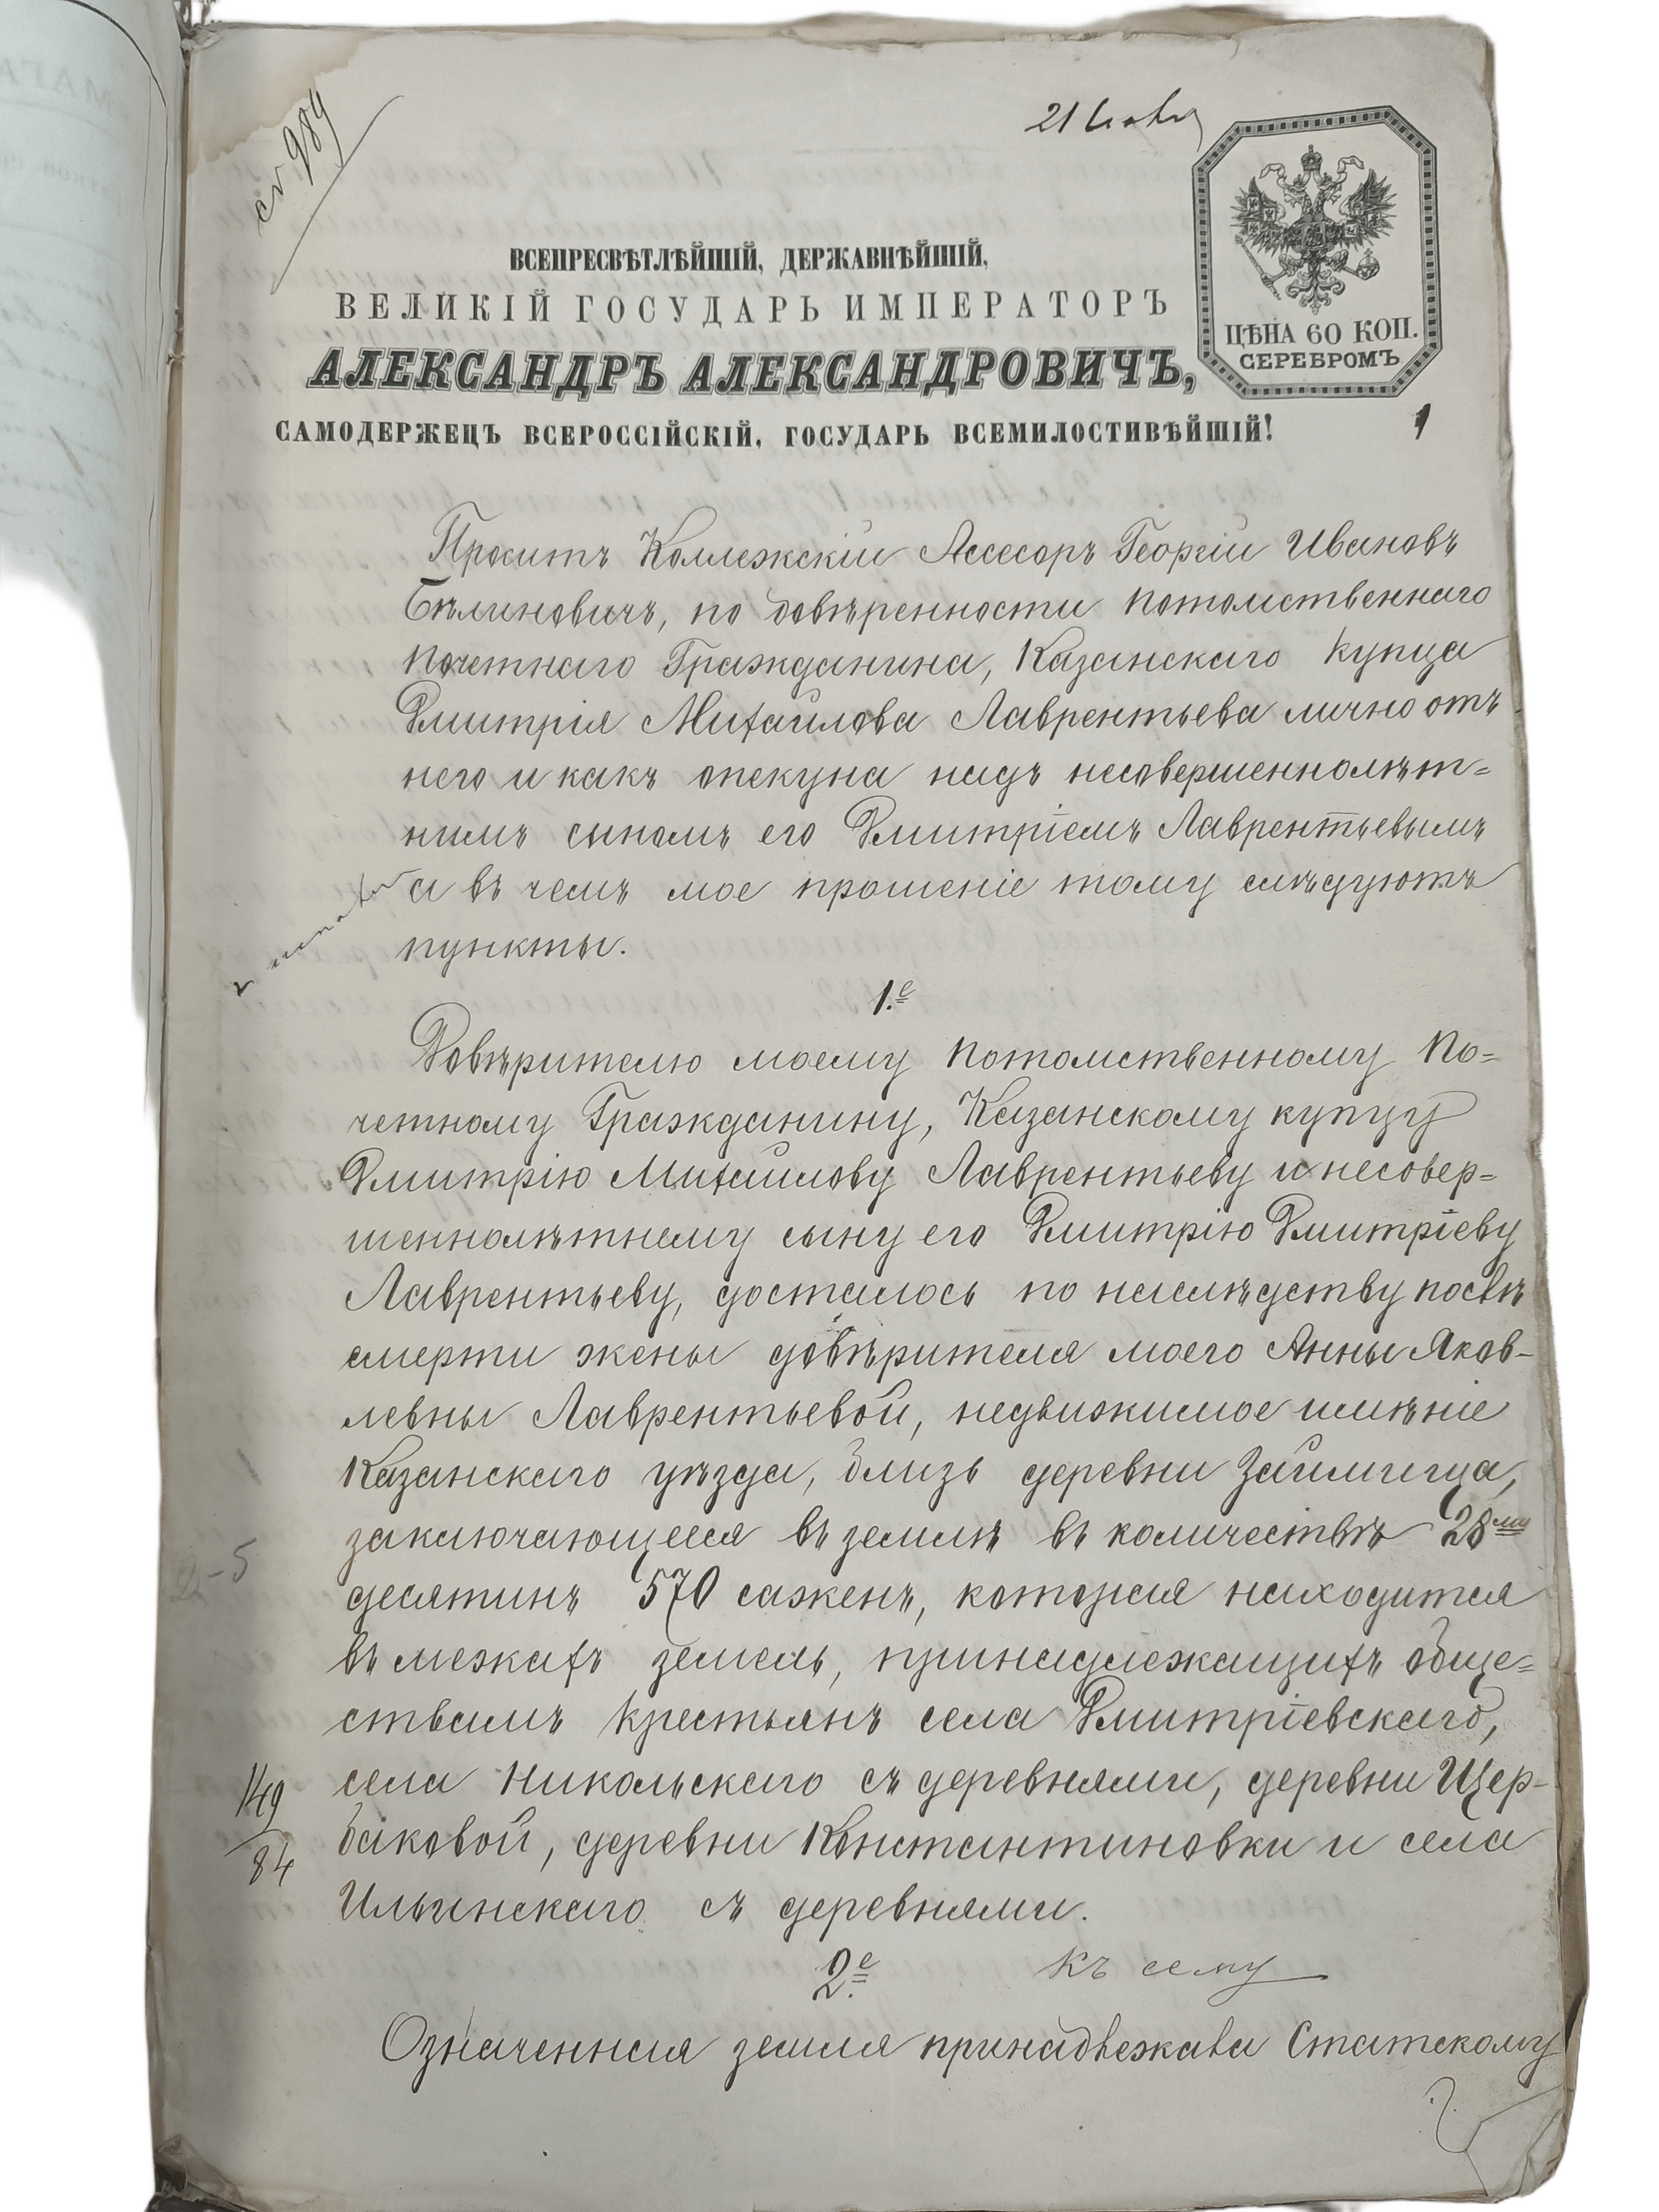 21 Іюля
ВСЕПРЕСВѢТЛѢЙШІЙ, ДЕРЖАВНѢЙШІЙ,
ВЕЛИКІЙ ГОСУДАРЬ ИМПЕРАТОРЪ
АЛЕКСАНДРЪ АЛЕКСАНДРОВИЧЪ,
САМОДЕРЖЕЦЪ ВСЕРОССІЙСКІЙ, ГОСУДАРЬ ВСЕМИЛОСТИВѢЙШІЙ!
ЦѢНА 60 КОП.
СЕРЕБРОМЪ
1
989
Проситъ Коллежскій Ассесоръ Георгій Ивановъ
Бѣлиновичъ, по довѣренности потомственнаго
почетнаго Гражданина, Казанскаго купца
Дмитрія Михайлова Лаврентьева лично отъ
него и какъ опекуна надъ несовершеннолѣт=
нимъ сыномъ его Дмитріемъ Лаврентьевымъ
а въ чемъ мое прошеніе тому слѣдуютъ
пункты.
1.е
Довѣрителю моему потомственному по=
четному Гражданину, Казанскому купцу
Дмитрію Михайлову Лаврентьеву и несовер=
шеннолѣтнему сыну его Дмитрію Дмитріеву
Лаврентьеву, досталось по наслѣдству послѣ
смерти жены довѣрителя моего Анны Яков-
левны Лаврентьевой, недвижимое имѣніе
Казанскаго уѣзда, близь деревни Займища,
заключающееся въ землѣ въ количествѣ 28ми
десятинъ 570 саженъ, которая находится
въ межахъ земель, принадлежащихъ обще=
ствамъ крестьянъ села Дмитріевскаго,
села Никольскаго съ деревнями, деревни Щер-
баковой, деревни Константиновки и села
Ильинскаго съ деревнями.
149
84
2-5
2.е
къ сему
Означенная земля принадлежала Статскому